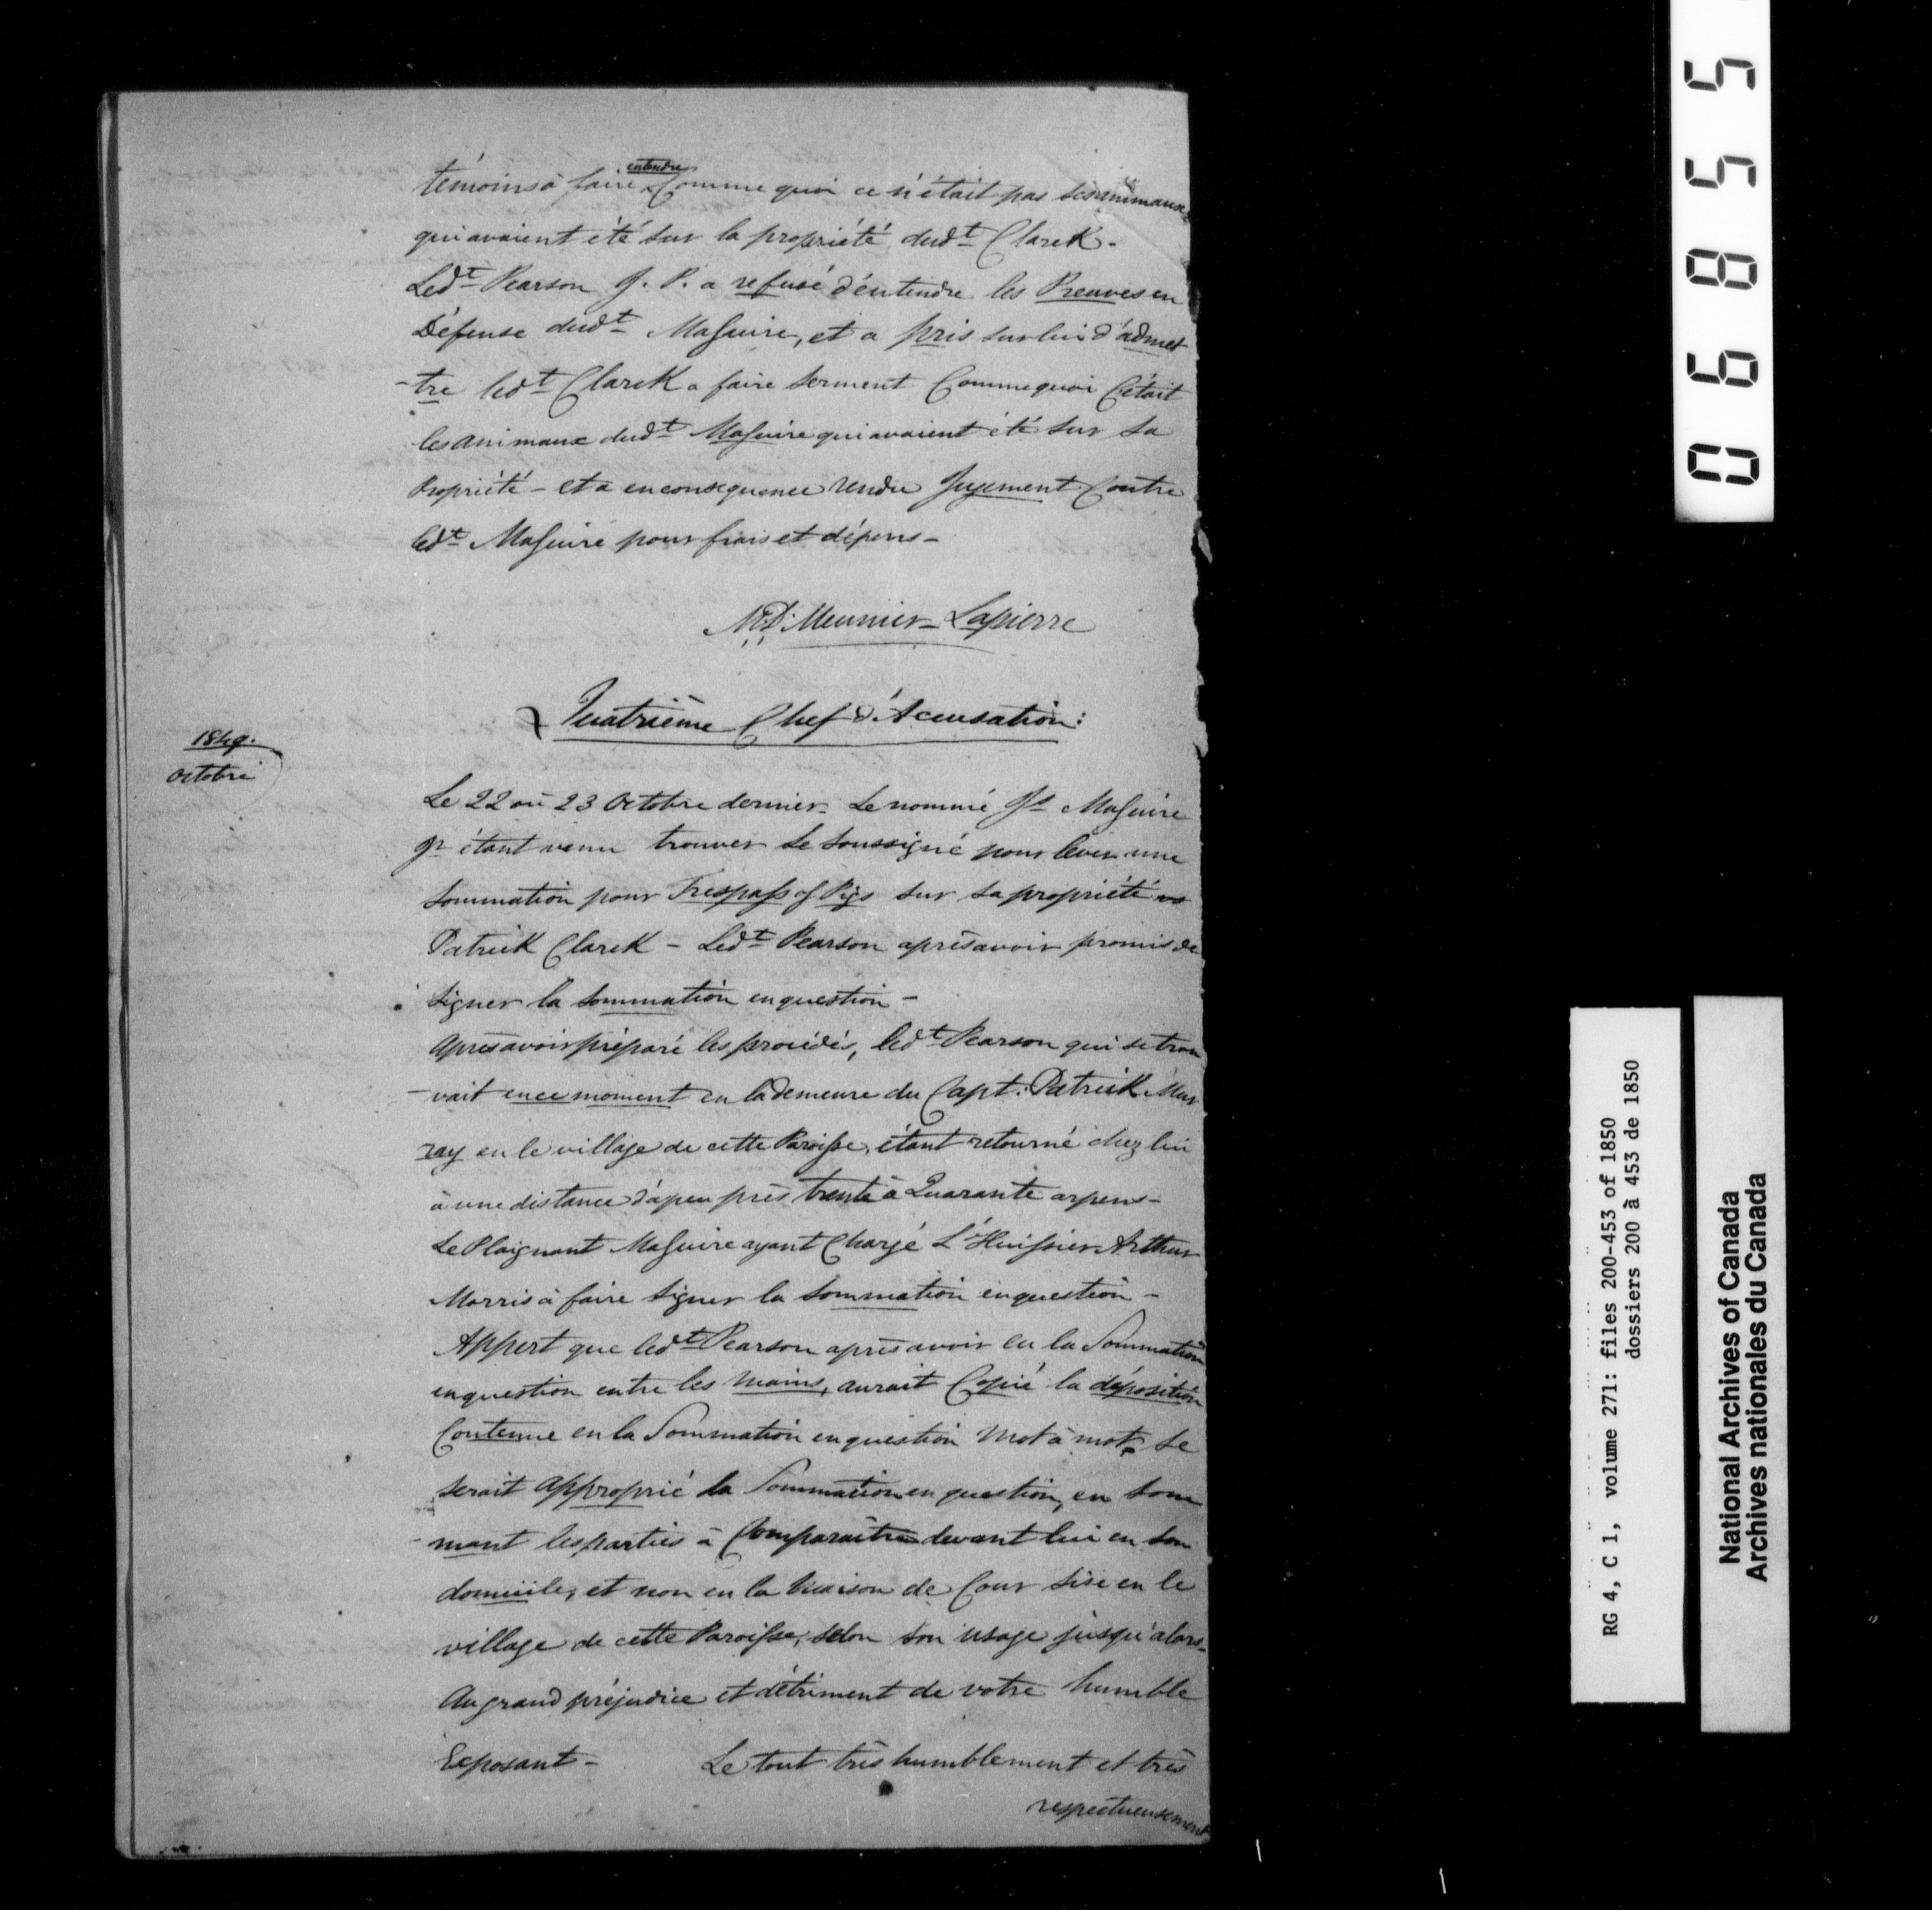 entendre
témoins à faire Comme quoi ce n'était pas ses animaux
qui avaient été sur la propriété dudt Clarek -
Ledt Pearson J. P. a refusé d'éntendre les Preuves en
Défense dudt MaGuire, et a pris sur lui d'admet
-tre ledt Clarek a faire serment Comme quoi C'était
les animaux dudt MaGuire qui avaient été sur sa
Propriété - et a en consequence rendu Jugement Contre
ledt MaGuire pour frais et dépens -
Meunier - Lapierre
Quatrième Chef d'Accusation :
1849.
Octobre
Le 22 ou 23 Octobre dernier - Le nommé Js MaGuire
Jr étant venu trouver le soussigné pour lever une
Sommation pour Trespass of Pigs sur sa propriété vs
Patrick Clarek - Ledt Pearson après avoir promis de
signer la Sommation en question -
Après avoir préparé les procédés, ledt Pearson qui se trou
-vait en ce moment en la demeure du Capt. Patrick Mur
ray en le village de cette Paroisse, étant retourné chez lui
à une distance d'apeu près trente à Quarante arpens -
Le Plaignant MaGuire ayant Chargé L'Huissier Arthur
Morris à faire signer la Sommation en question -
Appert que ledt Pearson après avoir eu la Sommation
en question entre les mains, aurait Copié la déposition
Contenue en la Sommation en question Mot à mot, se
serait approprié la Sommation en question, en som
-mant les parties à Comparaître devant lui en son
domicile, et non en la Maison de Cour sise en le
village de cette Paroisse, selon son usage jusqu'alors -
Au grand préjudice et détriment de votre humble
Exposant - Le tout très humblement et très
respectueusement
06855
RG 4, C 1, volume 271: files 200-453 of 1850
dossiers 200 à 453 de 1850
National Archives of Canada
Archives nationales du Canada